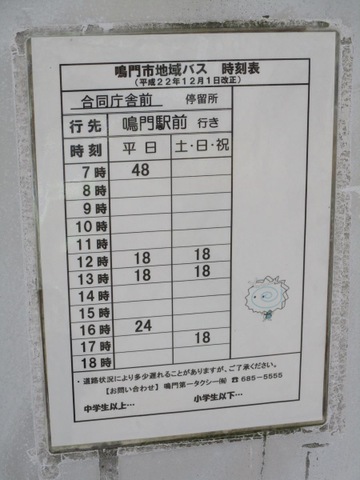 鳴門市地域バス 時刻表
(平成22年12月1日改正)
合同庁舎前 停留所
行先 鳴門駅前 行き
時刻 平日 土・日・祝
7時 48
8時
9時
10時
11時
12時 18 18
13時 18 18
14時
15時
16時 24
17時 18
18時
・道路状況により多少遅れることがありますが、ご了承ください。
【お問い合わせ】 鳴門第一タクシー㈲ ☎685-5555
中学生以上… 小学生以下…